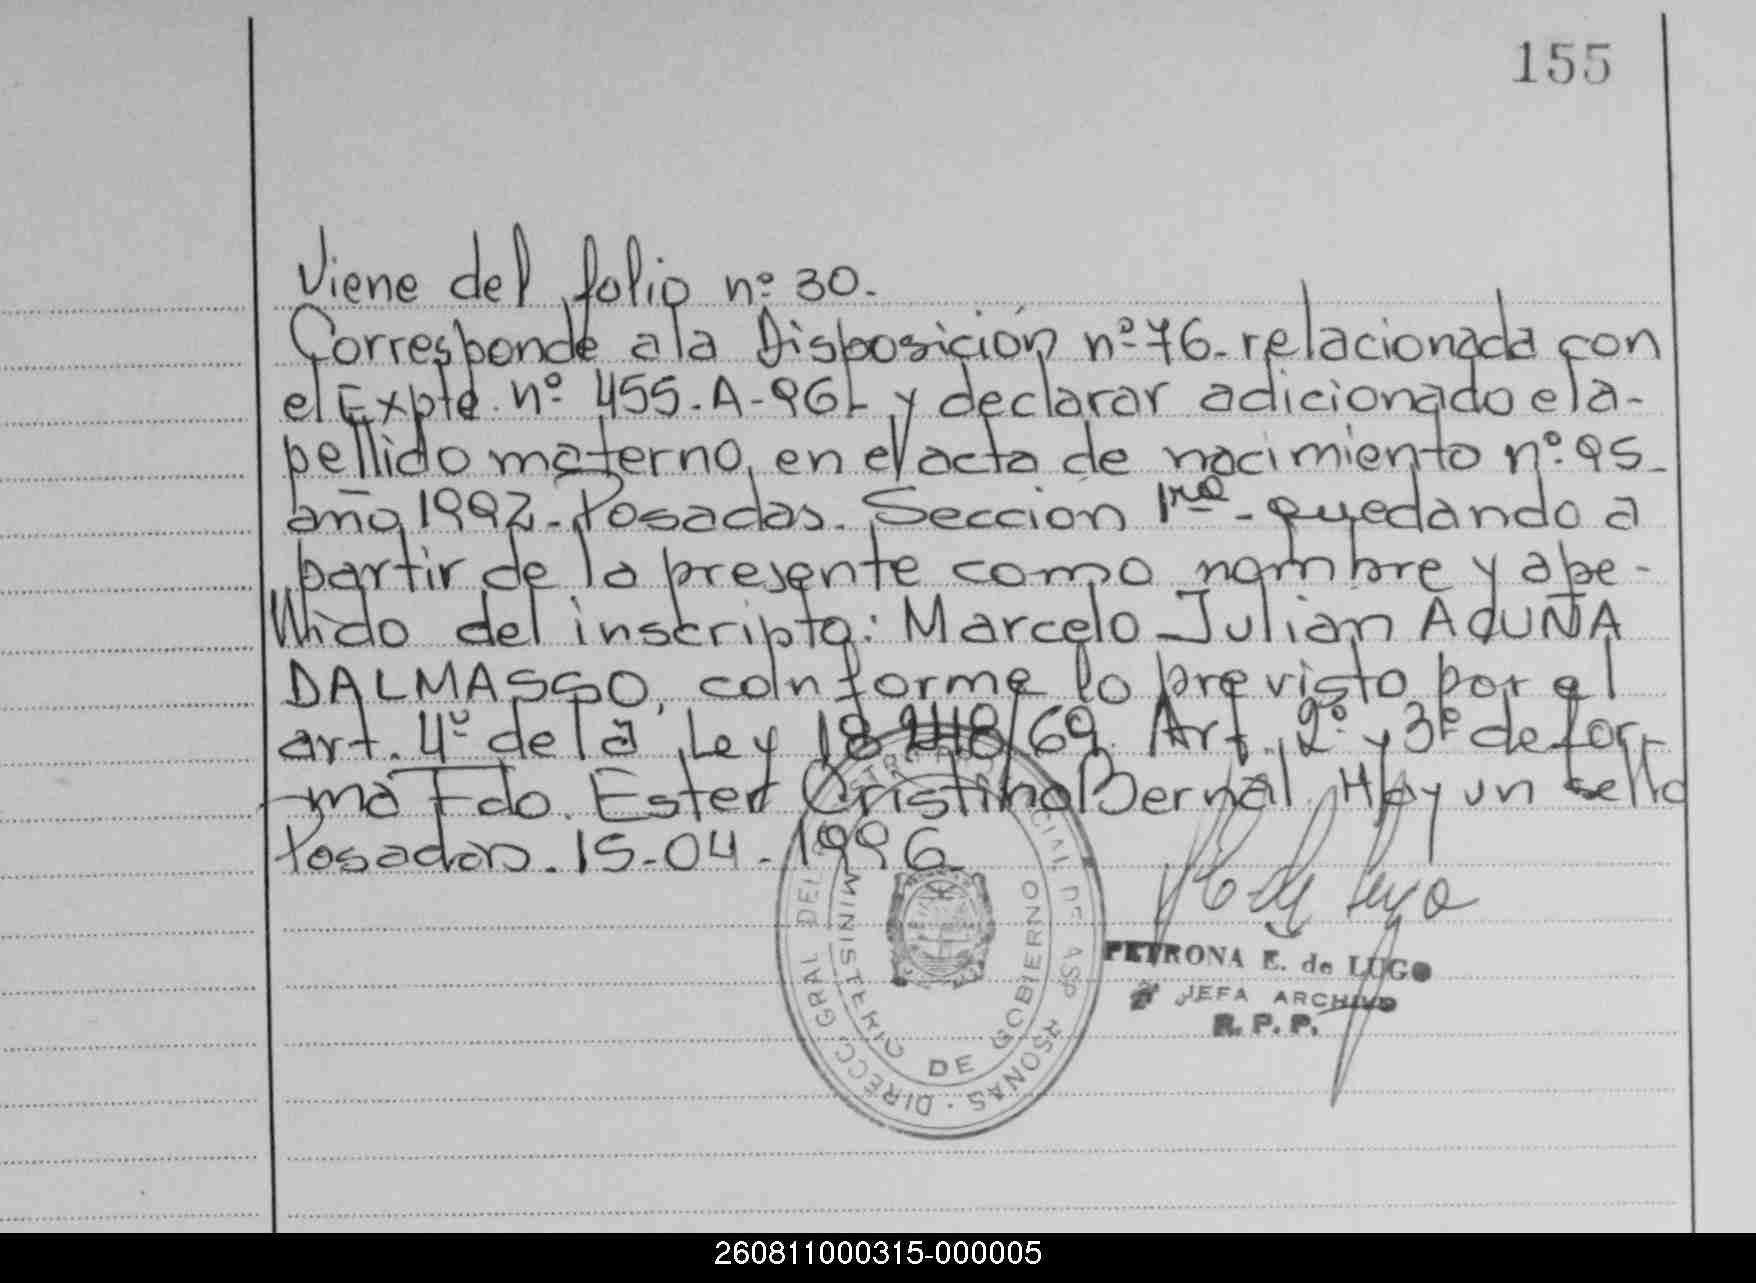 155
Viene del folio nº 30.
Corresponde a la Disposición nº 76. relacionada con
el Expte. nº 455. A-96L y declarar adicionado el a-
pellido materno, en el acta de nacimiento nº 95.
año 1992. Posadas. Sección 1ra. quedando a
partir de la presente como nombre y ape-
llido del inscripto: Marcelo Julian ACUÑA
DALMASSO, conforme lo previsto por el
art. 4º de la Ley 18.248/69. Art. 2º y 3º de for-
ma Fdo. Ester Cristina Bernal. Hay un sello
Posadas. 15-04-1996
DIRECC. GRAL DEL CIAL DE ASP PERSONAS
MINISTERIO DE GOBIERNO
PETRONA E. de LUGO
JEFA ARCHIVO
R. P. P.
260811000315-000005